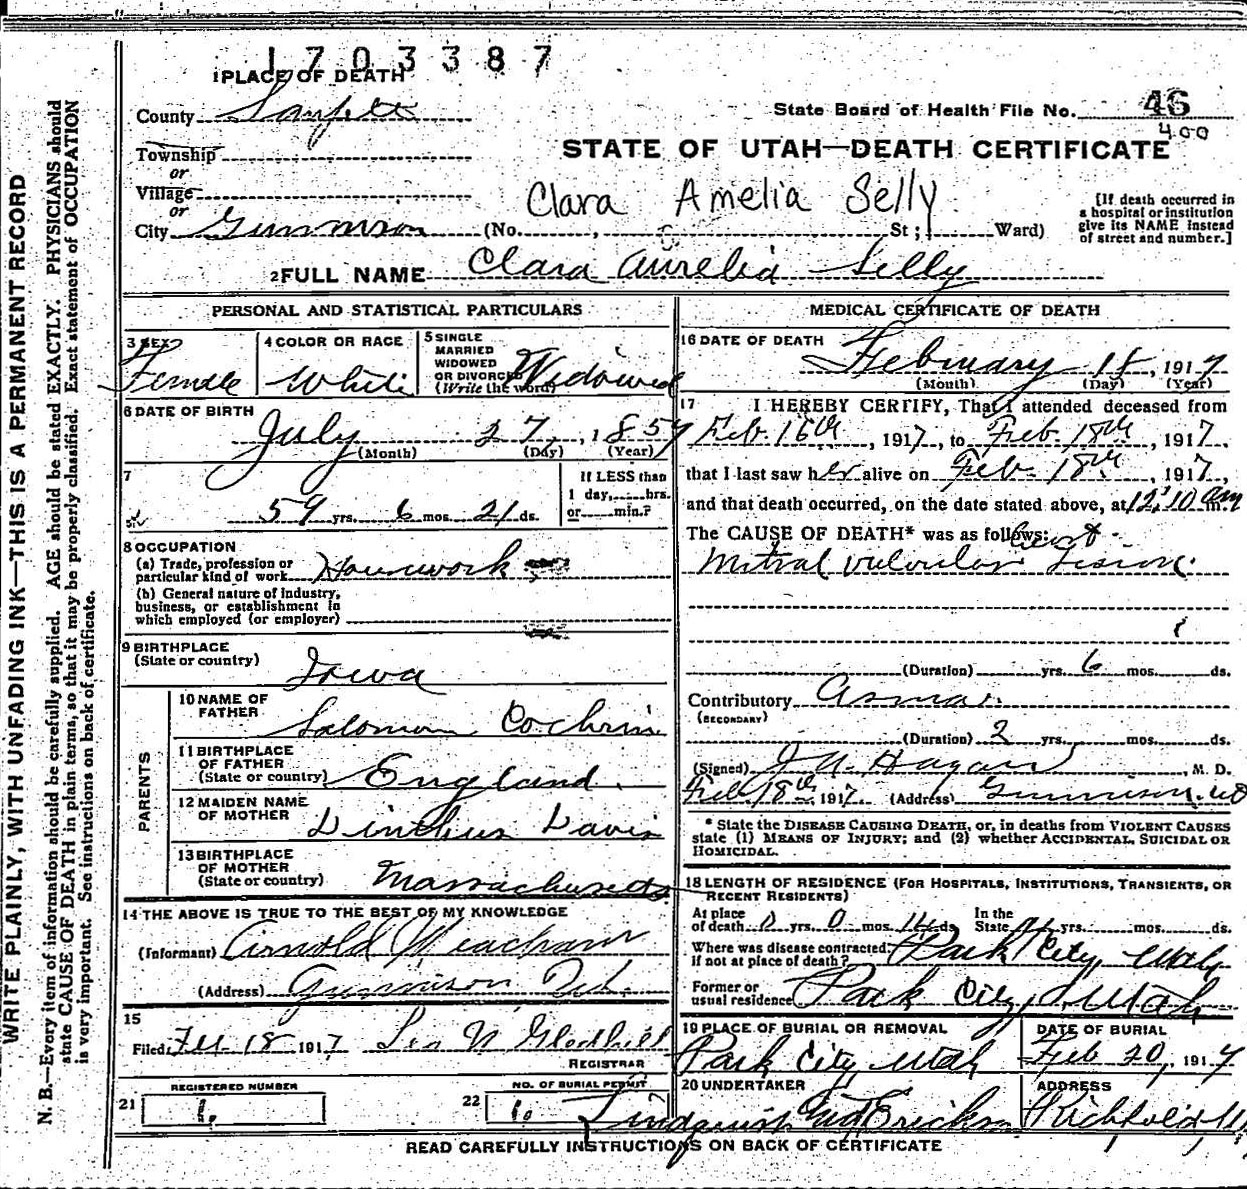 1703387
1 PLACE OF DEATH
County Sanpete
State Board of Health File No. 46
400
Township
or
STATE OF UTAH—DEATH CERTIFICATE
Village
or
Clara Amelia Selly
[If death occurred in
a hospital or institution
give its NAME instead
of street and number.]
City Gunnison (No. , St; Ward)
2 FULL NAME Clara Aurelia Selly
PERSONAL AND STATISTICAL PARTICULARS
3 SEX Female
4 COLOR OR RACE White
5 SINGLE
MARRIED
WIDOWED
OR DIVORCED
(Write the word) Widowed
6 DATE OF BIRTH
July 27, 1859
(Month) (Day) (Year)
7
59 yrs. 6 mos. 21 ds.
If LESS than
1 day, hrs.
or min.?
8 OCCUPATION
(a) Trade, profession or
particular kind of work Housework
(b) General nature of industry,
business, or establishment in
which employed (or employer)
9 BIRTHPLACE
(State or country) Iowa
PARENTS
10 NAME OF
FATHER Salomon Cochrin
11 BIRTHPLACE
OF FATHER
(State or country) England.
12 MAIDEN NAME
OF MOTHER Davis
13 BIRTHPLACE
OF MOTHER
(State or country) Massachusetts
14 THE ABOVE IS TRUE TO THE BEST OF MY KNOWLEDGE
(Informant) Arnold Meacham
(Address) Gunnison Utah.
15
Filed Feb 18 1917
REGISTRAR
REGISTERED NUMBER
21 1.
NO. OF BURIAL PERMIT
22 1.
MEDICAL CERTIFICATE OF DEATH
16 DATE OF DEATH
February 18, 1917
(Month) (Day) (Year)
17 I HEREBY CERTIFY, That I attended deceased from
Feb. 16th, 1917, to Feb. 18th, 1917,
that I last saw her alive on Feb. 18th, 1917,
and that death occurred, on the date stated above, at 12:10 am m.
The CAUSE OF DEATH* was as follows: heart
Mitral valvular Lesion.
(Duration) yrs. 6 mos. ds.
Contributory Asma.
(SECONDARY)
(Duration) 2 yrs. mos. ds.
(Signed) J A Hagan, M. D.
Feb. 18th 1917. (Address) Gunnison. Ut
* State the DISEASE CAUSING DEATH, or, in deaths from VIOLENT CAUSES
state (1) MEANS OF INJURY; and (2) whether ACCIDENTAL, SUICIDAL OR
HOMICIDAL.
18 LENGTH OF RESIDENCE (FOR HOSPITALS, INSTITUTIONS, TRANSIENTS, OR
RECENT RESIDENTS)
At place
of death 0 yrs. 0 mos. 14 ds.
In the
State yrs. mos. ds.
Where was disease contracted
if not at place of death? Park City, Utah
Former or
usual residence Park City, Utah
19 PLACE OF BURIAL OR REMOVAL
Park City Utah
DATE OF BURIAL
Feb 20, 1917
20 UNDERTAKER
ADDRESS
Richfield
READ CAREFULLY INSTRUCTIONS ON BACK OF CERTIFICATE
WRITE PLAINLY, WITH UNFADING INK—THIS IS A PERMANENT RECORD
N. B.—Every item of information should be carefully supplied. AGE should be stated EXACTLY. PHYSICIANS should
state CAUSE OF DEATH in plain terms, so that it may be properly classified. Exact statement of OCCUPATION
is very important. See instructions on back of certificate.